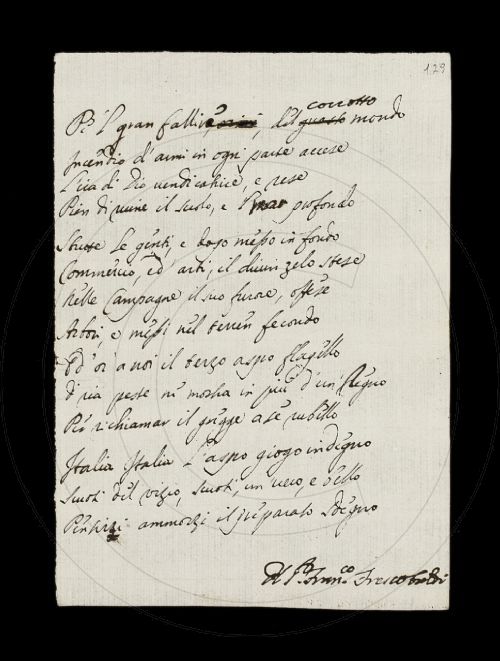 129
Pe'l gran fallir, del corrotto guasto mondo
Incendio d'armi in ogni parte accese
L'ira di Dio vendicatrice, e rese
Pien di ruine il suolo, e 'l mar profondo
Strutte le genti, e dopo messo in fondo
Commercio, ed arti, il divin zelo stese
Nelle Campagne il suo furore, offese
Arbori, e messi nel terren fecondo
Ed or a noi il terzo aspro flagello
D'ria peste ne mostra in più d'un Regno
Per richiamar il gregge a se rubello
Italia Italia l'aspro giogo indegno
Scuoti del vizio, scuoti, un vero, e bello
Pentirsi ammorzi il preparato sdegno
Franco. Frescobaldi